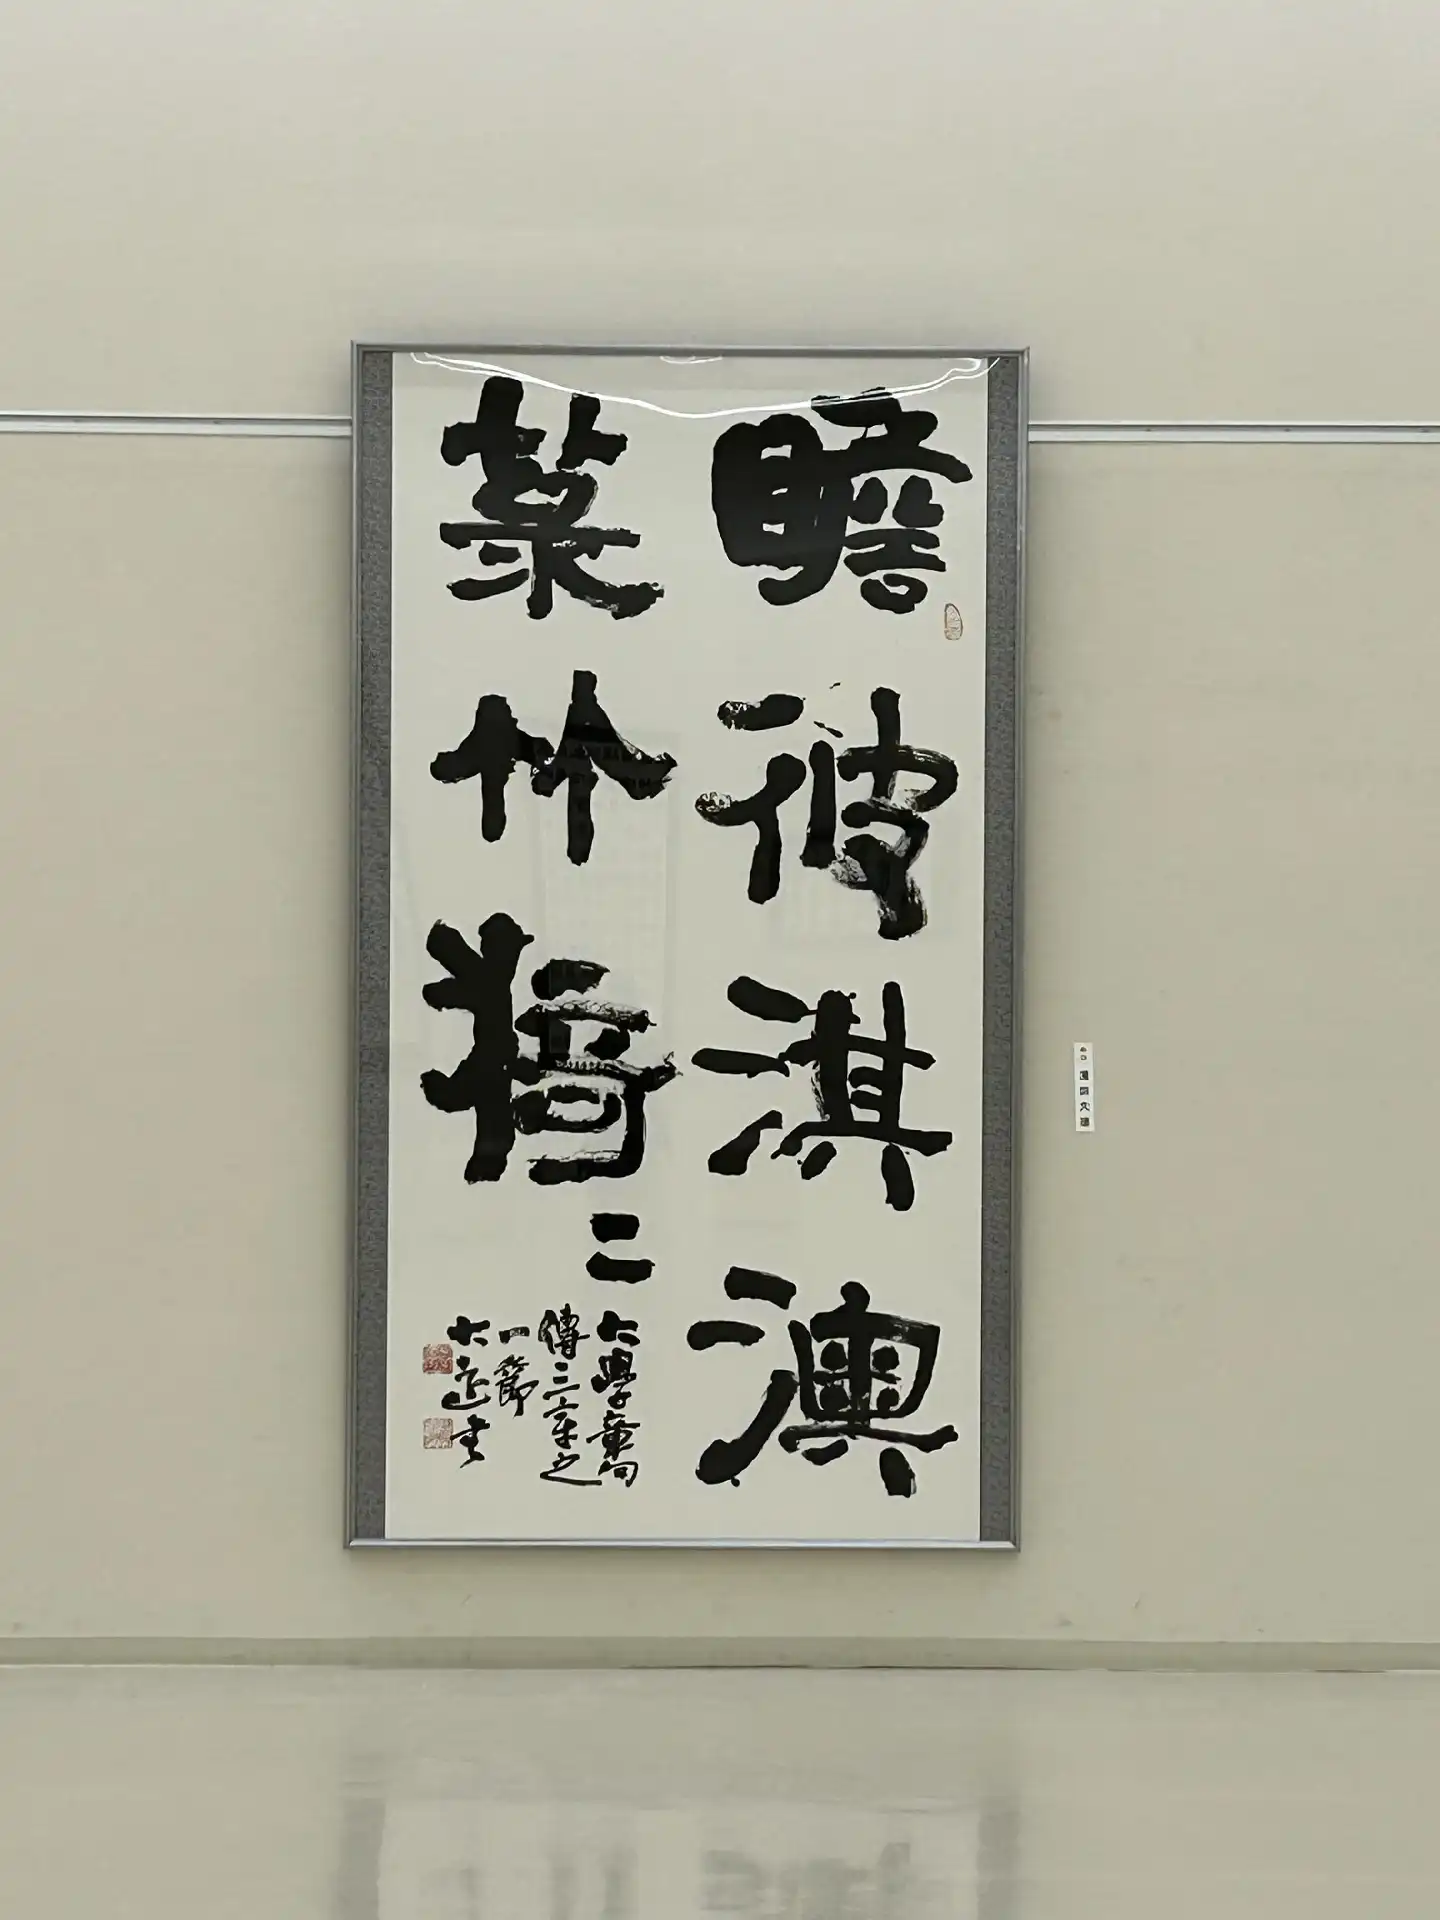 瞻彼淇澳
菉竹猗二
大學章句
傳三章之
一節